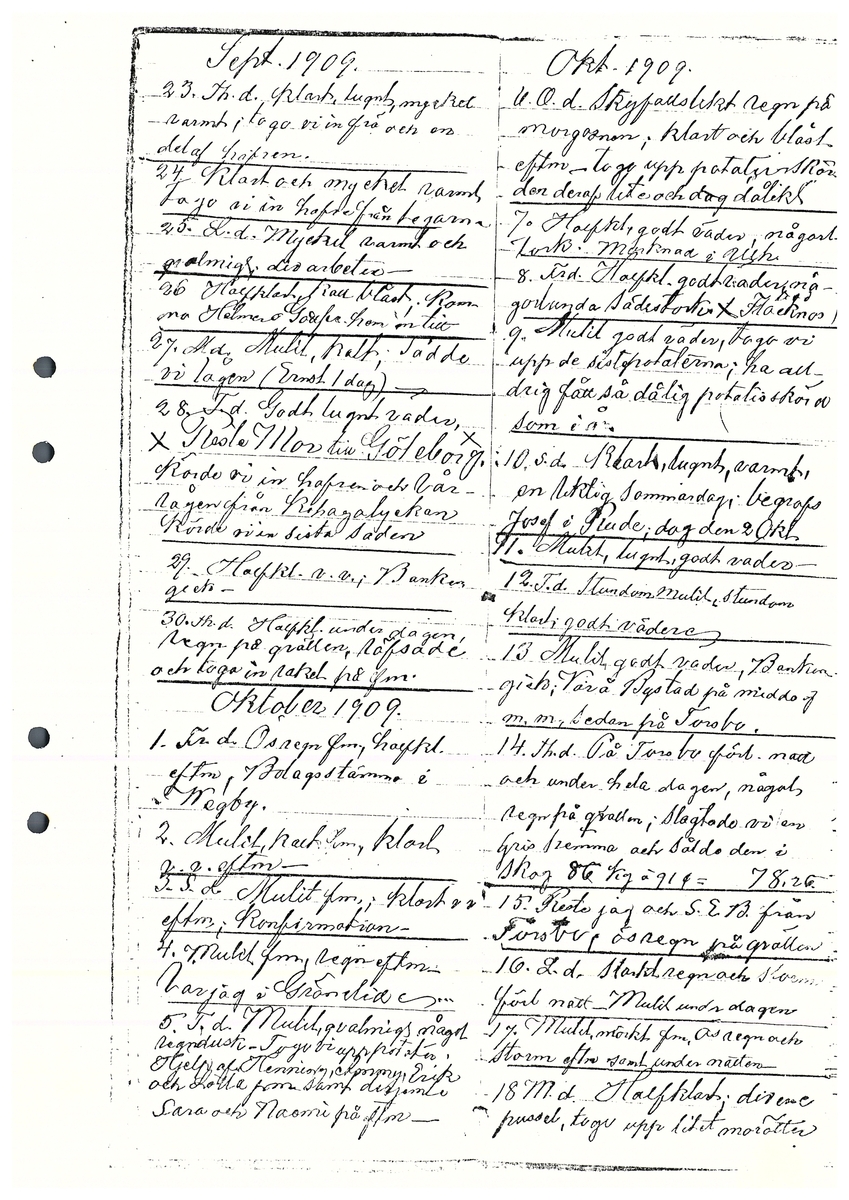 Sept. 1909.
23. Th.d. Klart, lugnt, mycket
varmt; togo vi in frö och en
del af hafren.
24. Klart och mycket varmt,
togo vi in hafre från tegarna
25. L.d. Mycket varmt och
qvalmigt, div arbeten —
26 Halfklart, kall blåst, Kom-
mo Helmer o Gustfa hem
27. Md. Mulit, kalt; Sådde
vi lagen (Ernst 1 dag)
28. T.d. Godt lugnt väder,
X Reste Mor till Göteborg. X
Körde vi in hafren och vår-
rågen från Kohagalyckan
Körde vi in sista säden
29. Halfkl. v.v.; Banken
gick —
30. th.d. Halfkl. under dagen,
regn på qvällen, räfsade
och togo in rakel på fm.
Oktober 1909.
1. Fr. d. Ösregn fm, halfkl.
eftm, Bolagsstämma i
Wegby.
2. Mulit, kalt fm, klart
v.v. eftm —
3. S. d. Mulit fm; klart v.v
eftm; Konfirmation —
4. Mulit fm, regn eftm —
Var jag i Grönelid
5. T. d. Mulit, qvalmigt, något
regndusk — Togo vi upp potäter.
Hjelp af Henning, Emmy, Erik
och Lotta fm samt
Sara och Naomi på eftm —
Okt. 1909.
6. O. d. Skyfallslikt regn på
morgonen; klart och blåst
eftm — togo upp potatisskör-
den deraf lite och dålikt
7. Halfkl, godt väder, något
Tork. Marknad i Ulrh.
8. Frd. Halfkl. godt väder, nå-
gorlunda Sädestork X
9. Mulit godt väder, togo vi
upp de sista potaterna; ha all-
drig fått så dålig potatisskörd
som i år.
10. S.d. Klart, lugnt, varmt,
en riktig sommardag; begrafs
Josef i Rude; dog den 2 Okt.
11. Mulit, lugnt, godt väder —
12. T.d. Stundom mulit, stundom
klart, godt väder
13 Mulit godt väder, Banken
gick; Var å Bystad på middag
m.m, sedan på Torsbo.
14. Th.d. På Torsbo förl. natt
och under hela dagen, något
regn på qvällen; Slagtade vi en
Gris hemma och Sålde den i
Skog 86 kg à 91 ¢ = 78,26
15. Reste jag och S. E. B. från
Torsbo, ösregn på qvällen
16. L. d. starkt regn och storm
förl natt — Mulit undr dagen
17. Mulit, mörkt fm, ösregn och
storm eftm samt under natten —
18 M.d Halfklart; diverse
pussel, togo upp litet morötter